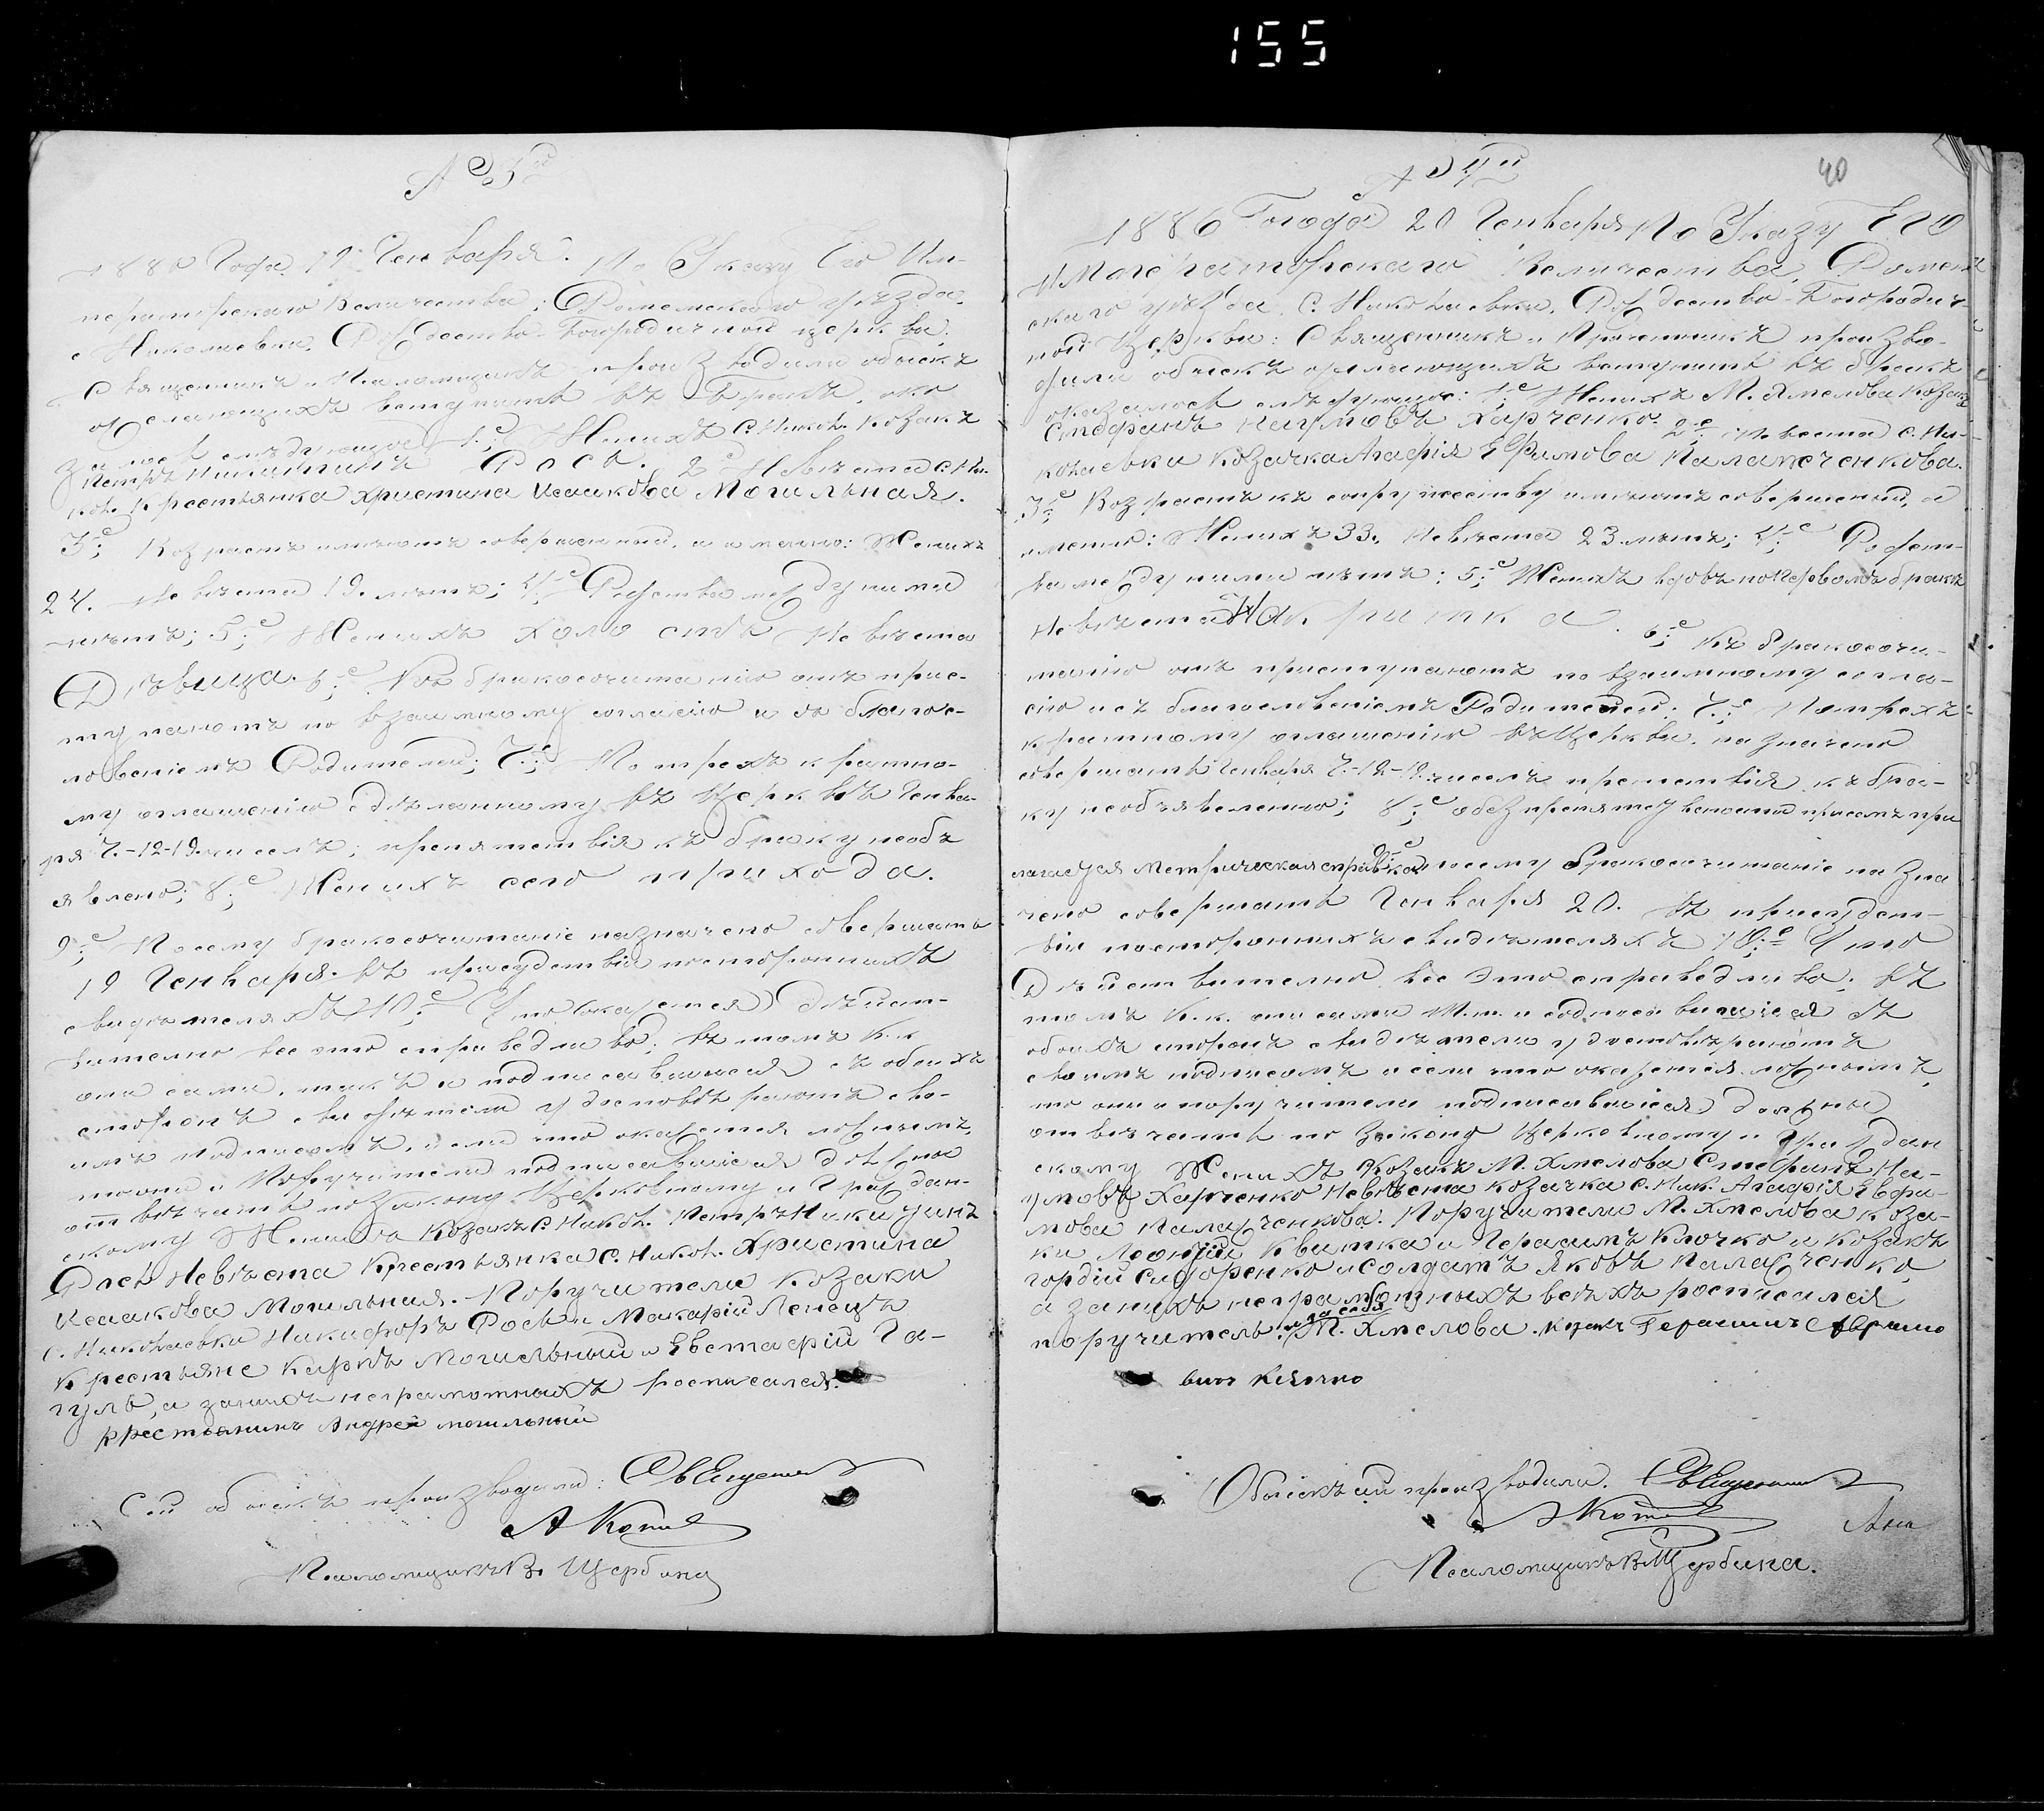 155
№ 3й
1886 Года 19 Генваря. По Указу Его Им-
ператорскаго Величества; Роменскаго уезда.
с Николаевки, Рождество-Богородичной церкви,
Священникъ и Псаломщикъ производили обыскъ
желающихъ вступить въ Бракъ, ока
залось следующое 1:е Женихъ С. Никол. Козакъ
Петръ Никитинъ Рось. 2е Невеста с. Ни-
кол. Крестьянка Христина Исаакова Могильная.
3:е Возрастъ имеютъ совершенный, а именно: Женихъ
24. Невеста 19. летъ; 4:е Родства между ними
нетъ; 5:е Женихъ холостъ Невеста
Девица. 6:е Къ бракосочитанію они прис-
тупаютъ по взаимному согласію и съ благос-
ловеніемъ Родителей; 7:е По трехъ кратно-
му оглашенію сделанному въ Церкве Генва-
ря 7.-12-19. числъ; препятствія къ браку необъ
явлено; 8:е Женихъ сего прихода.
9:е Посему бракосочитаніе назначено совершить
19 Генваря. въ присудствіи постороннихъ
свидетеляхъ 10:е Что (окажется) действи-
вительно все это справедливо; въ томъ к.к
они сами, такъ и подписавшіеся съ обоихъ
сторонъ свидетели удостоверяютъ сво-
имъ подписомъ, и если что окажется ложнымъ,
то они и Поручители подписавшіеся должны
отвечать по закону Церковному и Граждан-
скому Женихъ Козакъ С. Никол. Петръ Никитинъ
Рось Невеста Крестьянка С. Никол. Христина
Исаакова Могильная. Поручители Козаки
С. Николаевки Никифоръ Рось и Макарій Ленецъ
Крестьяне Карпъ Могильный и Евстафій Га-
гуль, а за нихъ неграмотныхъ росписался:
крестьянинъ Андрей могильный
Сей обыскъ производили: Священникъ
А Копи
Псаломщикъ В. Щербина
№ 4й
40
1886 Года 20 Генваря По Указу Его
Императорскаго Величества, Ромен
скаго уезда, С. Николаевки, Рождество-Богородич-
ной Церкви: Священникъ и Причетникъ произво-
дили обыскъ желающихъ вступить въ бракъ
оказалось следующое: 1:е Женихъ М. Хмелова Козакъ
Стефанъ Наумовъ Харченко. 2:е Невеста С. Ни-
колаевки Козачка Агафія Ефимова Палажченкова.
3:е Возрастъ къ супружеству имеютъ совершеный, а
именно: Женихъ 33. Невеста 23. летъ; 4:е Родст-
ва между ними нетъ: 5:е Женихъ вдовъ по первомъ браке
Невеста Покритка. 6:е Къ бракосочи-
танію они приступаютъ по взаимному согла-
сію и съ благословеніемъ Родителей; 7:е По трехъ-
кратному оглашенію въ Церкви. назначено
совершить Генваря 7.-12-19. числъ препятствія къ бра-
ку необъявленно; 8:е обезпрепятственности присемъ при
лагается метрическая справка 9:е посему бракосочитаніе назна
чено совершить Генваря 20. въ присудст-
віи постороннихъ свидетеляхъ 10:е Что
Действительно все Это справедливо; въ
томъ к.к. они сами т.т. и подписавшіеся съ
обоихъ сторонъ свидетели удостоверяютъ
своимъ подписомъ и если что окажется ложнымъ,
то они и поручители подписавшіеся должны
отвечать по Закону Церковному и Граждан
скому Женихъ Козакъ М. Хмелова Стефанъ На-
умовъ Харченко Невеста козачка С. Ник. Агафія Евфи-
мова Палажченкова. Поручители М. Хмелова коза-
ки Леонтій Квитка и Герасимъ Клочко и козакъ
Гордій Сидоренко и Солдатъ Яковъ Палажченко,
а за нихъ неграмотныхъ всехъ росписался
поручитель: и за себя М. Хмелова. козакъ Герасимъ
Обыскъ сей производили. Священникъ
Псаломщикъ В Щербина.